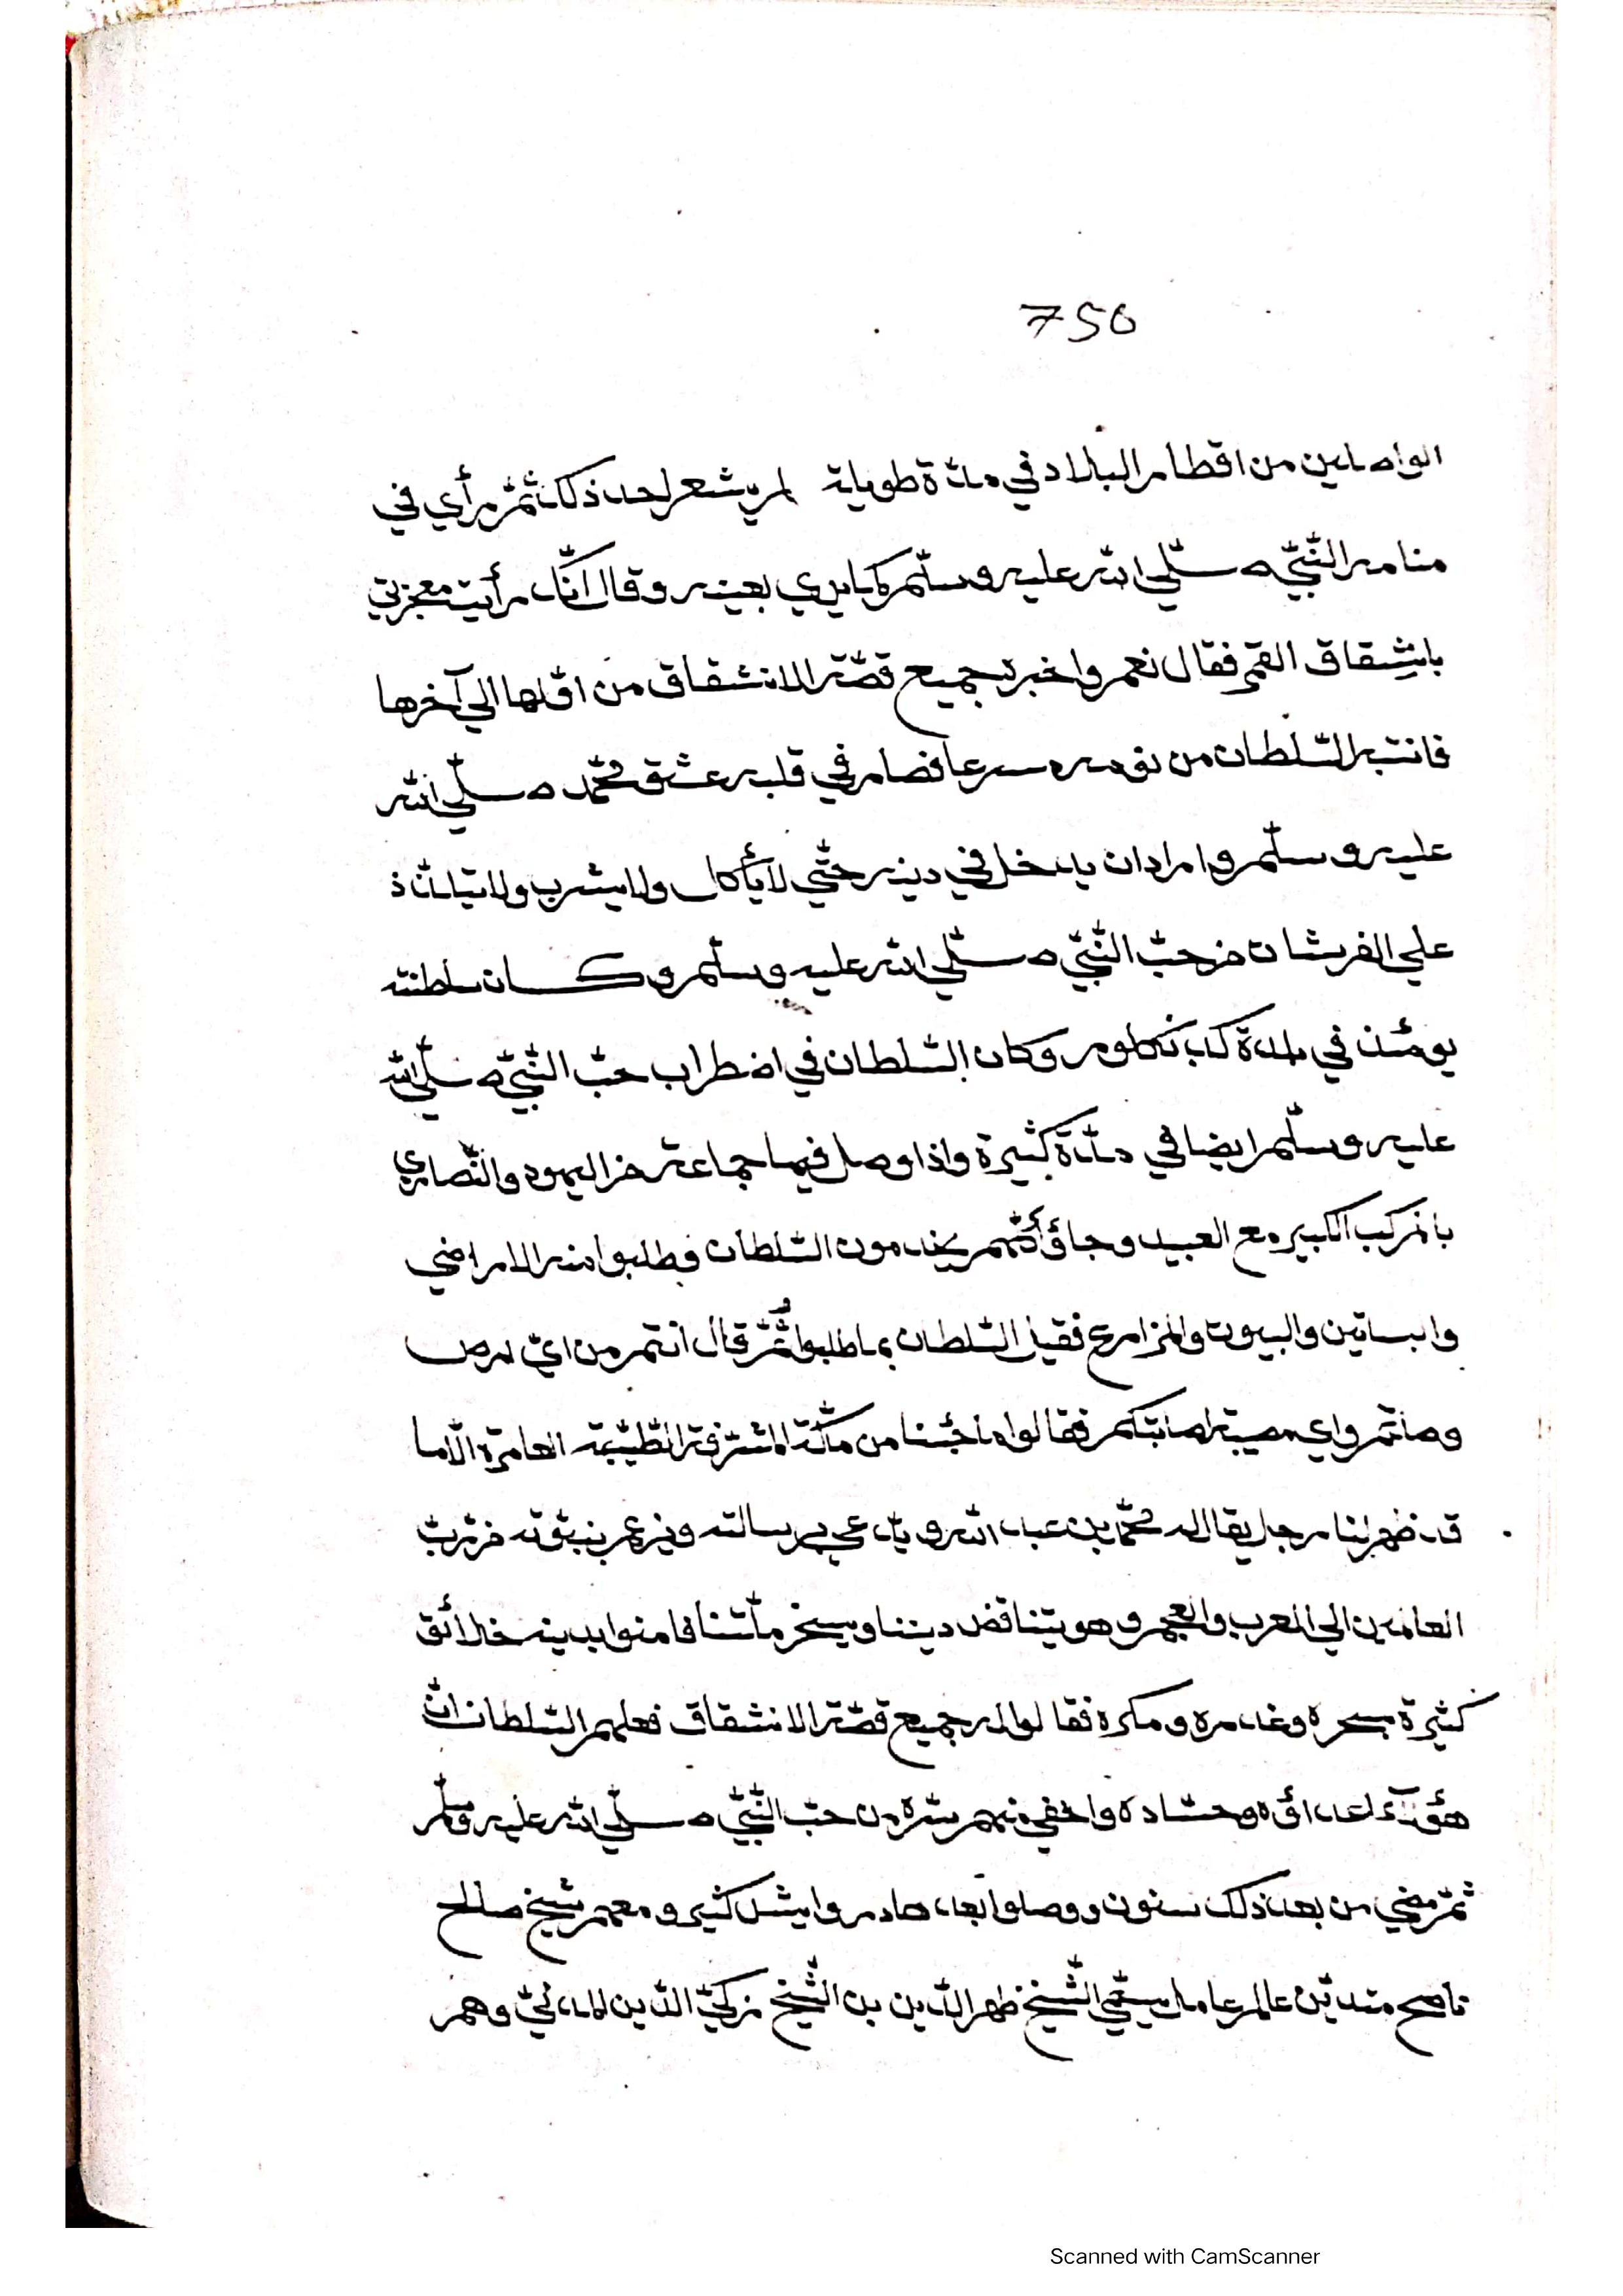 750
الواصلين من اقطار البلاد في مدّة طويلة لم يشعر لحد ذلك ثمّ رأي في
منامه النّبيّ صلّي الله عليه وسلّم كما يري بعينه وقال انّك رأيت معجزتي
بانشِقاق القمر فقال نعم واخبره جميع قصّة الانشقاق من اوّلها الي آخرها
فانتبه السّلطان من نومه سرعا فصار في قلبه عشق محمّد صلّي الله
عليه وسلّم واراد ان يدخل في دينه حتّي لا يأكل ولا يشرب ولا يتلذّذ
علي الفرشات من حبّ النّبيّ صلّي الله عليه وسلّم وكان سلطنته
يومئذ في بلدة كدنكلور وكان السّلطان في اضطراب حبّ النّبيّ صلّي الله
عليه وسلّم ايضا في مدّة كثيرة واذا وصل فيها جماعة من اليهود والنّصاري
بالمركب الكبير مع العبيد وجاؤا أنّهم يخدمون السّلطان وطلبوا منه الاراضي
وابساتين والبيوت والمزارع فقبل السّلطان بما طلبوا ثُمّ قال انتم من ايّ ارض
وصلتم واي مصيبة اصابتكم فقالوا ما جئنا من مكّة المشرّفة الطّيّبة العامرة الّا ما
قد ظهر لنا رجل يقال له محمّد بن عبد الله ويدّعي برسالته ويزعم بنبوّته من ربّ
العالمين الي العرب والعجم وهو يتناقض ديننا ويسخر ملّتنا فامنوا بدينه خلائق
كثيرة بسحره وغدره ومكره فقالوا له جميع قصّة الانشقاق فعلم السّلطان انّ
هؤلآء اعداؤه وحسّاده واخفي منهم سرّه من حبّ النّبيّ صلّي الله عليه وسلّم
ثمّ مضي من بعد ذلك سنون ووصلوا بعد كثير ومعهم شيخ صالح
ناصح متديّن عالم عامل يسمّي الشّيخ ظهر الدّين بن الشّيخ زكيّ الدّين المدنيّ وهم
Scanned with CamScanner